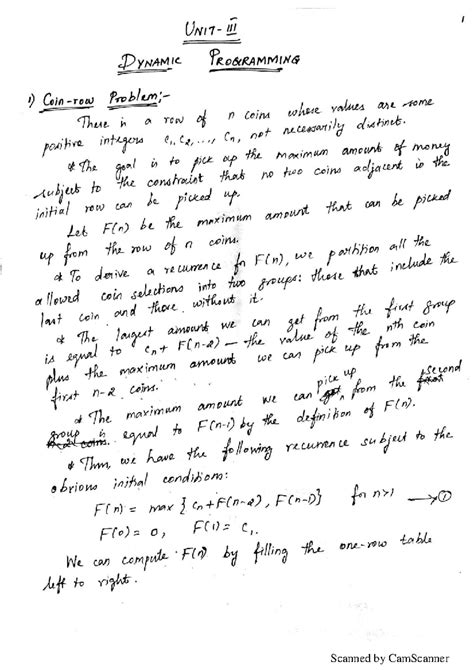 1
UNIT-III
DYNAMIC PROGRAMMING
1) Coin-row Problem:-
There is a row of n coins whose values are some
positive integers c₁, c₂, ..., cₙ, not necessarily distinct.
* The goal is to pick up the maximum amount of money
subject to the constraint that no two coins adjacent in the
initial row can be picked up.
Let F(n) be the maximum amount that can be picked
up from the row of n coins.
* To derive a recurrence for F(n), we partition all the
allowed coin selections into two groups: those that include the
last coin and those without it.
* The largest amount we can get from the first group
is equal to cn + F(n-2) — the value of the nth coin
plus the maximum amount we can pick up from the
first n-2 coins.
* The maximum amount we can pick up from the second
group is equal to F(n-1) by the definition of F(n).
* Thus, we have the following recurrence subject to the
obvious initial conditions:
F(n) = max { cn + F(n-2), F(n-1)} for n>1 → ①
F(0) = 0, F(1) = c₁.
We can compute F(n) by filling the one-row table
left to right.
Scanned by CamScanner